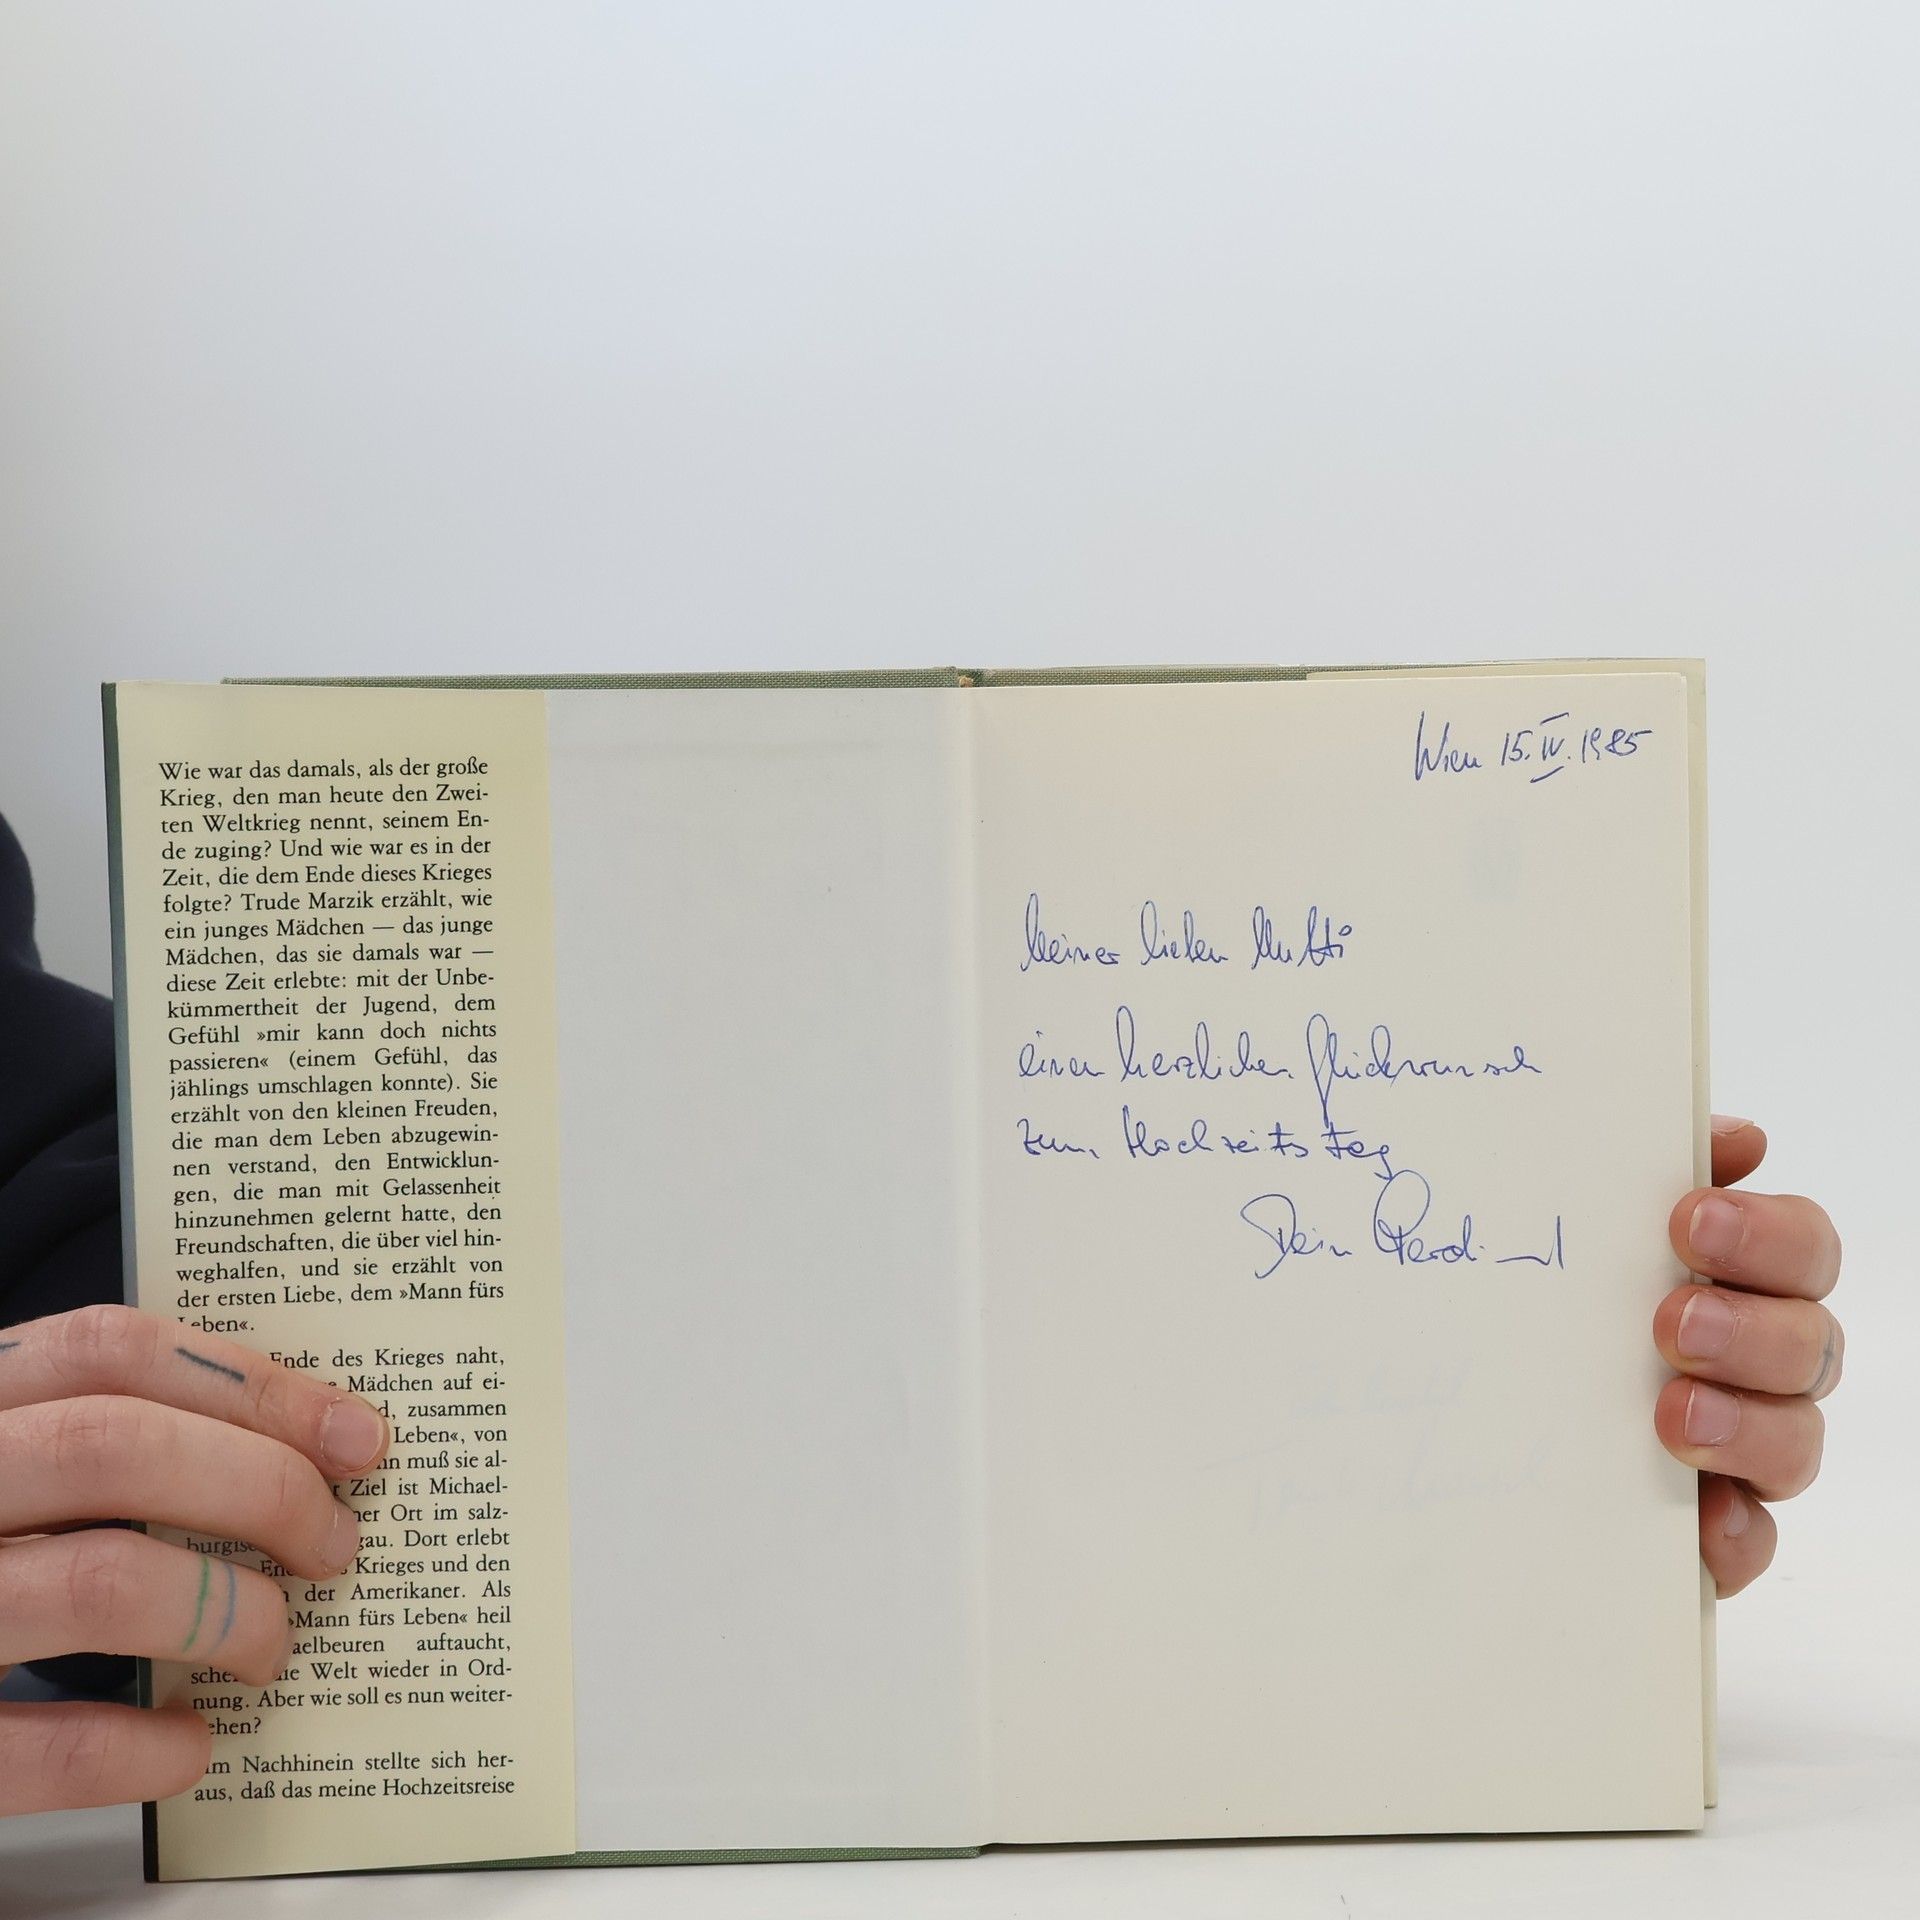 Wie war das damals, als der große
Krieg, den man heute den Zwei-
ten Weltkrieg nennt, seinem En-
de zuging? Und wie war es in der
Zeit, die dem Ende dieses Krieges
folgte? Trude Marzik erzählt, wie
ein junges Mädchen — das junge
Mädchen, das sie damals war —
diese Zeit erlebte: mit der Unbe-
kümmertheit der Jugend, dem
Gefühl »mir kann doch nichts
passieren« (einem Gefühl, das
jählings umschlagen konnte). Sie
erzählt von den kleinen Freuden,
die man dem Leben abzugewin-
nen verstand, den Entwicklun-
gen, die man mit Gelassenheit
hinzunehmen gelernt hatte, den
Freundschaften, die über viel hin-
weghalfen, und sie erzählt von
der ersten Liebe, dem »Mann fürs
Leben«.
Ende des Krieges naht,
Mädchen auf ei-
zusammen
Leben«, von
muß sie al-
Ziel ist Michael-
Ort im salz-
Dort erlebt
Krieges und den
der Amerikaner. Als
»Mann fürs Leben« heil
auftaucht,
die Welt wieder in Ord-
nung. Aber wie soll es nun weiter-
gehen?
Im Nachhinein stellte sich her-
aus, daß das meine Hochzeitsreise
Wien 15.IV.1985
Meiner lieben Mutti
einen herzlichen Glückwunsch
zum Hochzeitstag
Dein Ferdinand